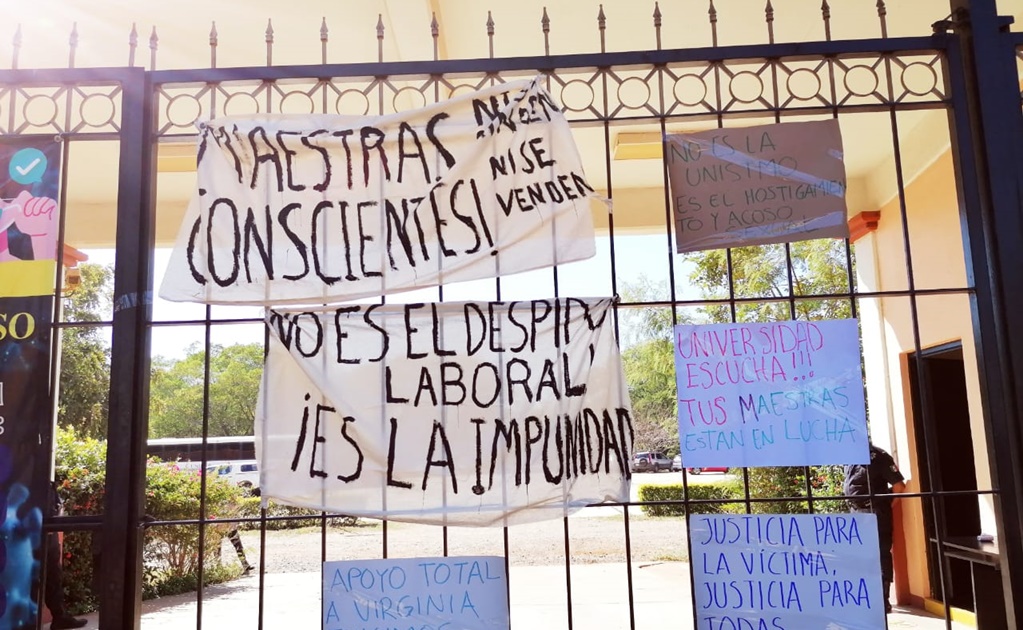 ¡MAESTRAS
¡CONSCIENTES!
NI SE
VENDEN
NO ES LA
UNISIMO
ES EL HOSTIGAMIEN
TO Y ACOSO
SEXUAL
NO ES EL DESPIDO
LABORAL,
¡ES LA IMPUNIDAD
UNIVERSIDAD
ESCUCHA!!!
TUS MAESTRAS
ESTAN EN LUCHA
APOYO TOTAL
A VIRGINIA
JUSTICIA PARA
LA VÍCTIMA,
JUSTICIA PARA
TODAS
SO